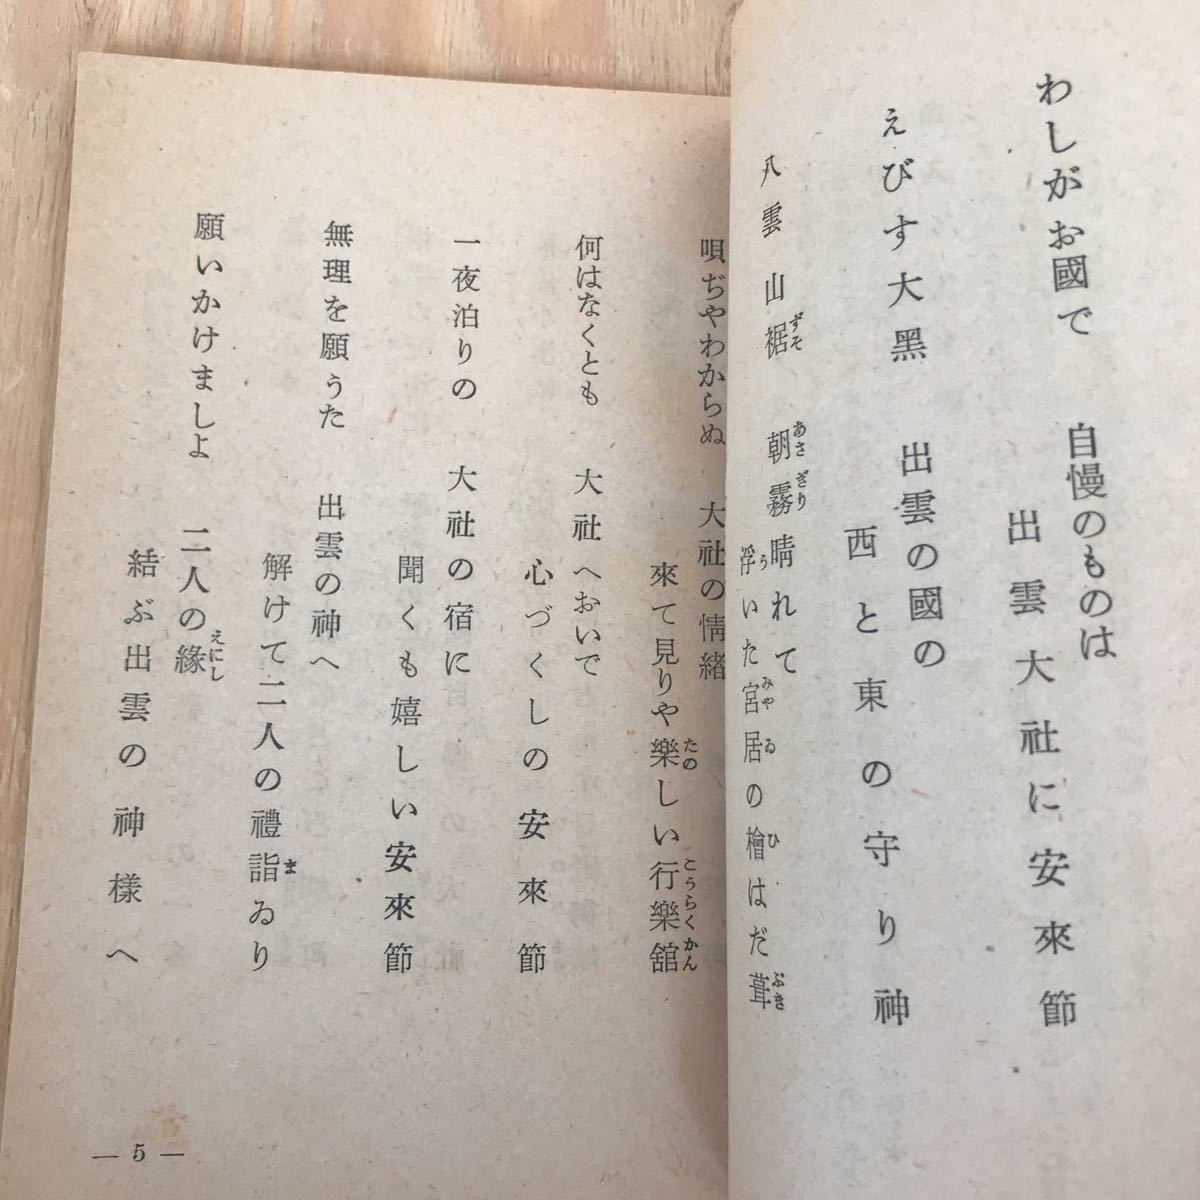 わしがお國で　自慢のものは
出雲大社に安來節
えびす大黑　出雲の國の
西と東の守り神
八雲山裾　朝霧晴れて
ずそ　あさぎり
浮いた宮居の檜はだ葺
う　みやゐ　ひ　ぶき
唄ぢやわからぬ　大社の情緖
來て見りや樂しい行樂舘
たの　こうらくかん
何はなくとも　大社へおいで
心づくしの安來節
一夜泊りの　大社の宿に
聞くも嬉しい安來節
無理を願うた　出雲の神へ
解けて二人の禮詣ゐり
ま
願いかけましよ　二人の緣
えにし
結ぶ出雲の神樣へ
— 5 —